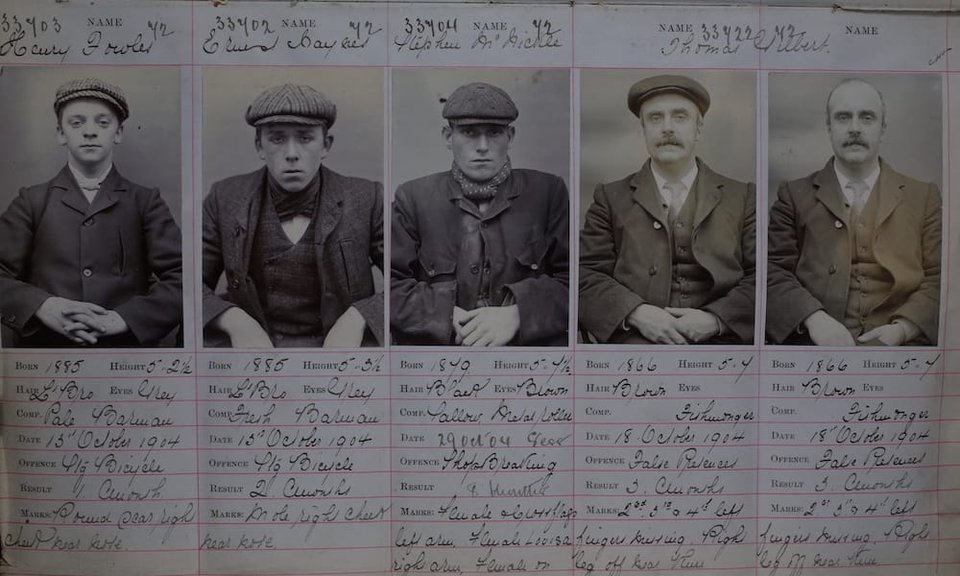 33703 NAME 72
Henry Fowler
33702 NAME 72
Ernest Haynes
33704 NAME 72
Stephen McNichol
NAME 33722 72
Thomas Gilbert.
NAME
BORN 1885 HEIGHT 5-2½
HAIR L'Bro EYES Grey
COMP. Pale Barman
DATE 15th October 1904
OFFENCE Stg Bicycle
RESULT 1. Month
MARKS: Round scar right
cheek near nose.
BORN 1885 HEIGHT 5-3½
HAIR L'Bro EYES Grey
COMP. Fresh Barman
DATE 15th October 1904
OFFENCE Stg Bicycle
RESULT 2. Months
MARKS: Mole right cheek
near nose.
BORN 1879 HEIGHT 5-4½
HAIR Black EYES Brown
COMP. Sallow, Metal roller
DATE 29 Oct 04
OFFENCE Shop Breaking
RESULT Months
MARKS: Female & Cross flags
left arm, Female Louisa
right arm, Female on
BORN 1866 HEIGHT 5-7
HAIR Brown EYES
COMP. Fishmonger
DATE 18 October 1904
OFFENCE False Pretences
RESULT 3. Months
MARKS: 2nd 3rd & 4th left
fingers missing. Right
leg off near
BORN 1866 HEIGHT 5-7
HAIR Brown EYES
COMP. Fishmonger
DATE 18th October 1904
OFFENCE False Pretences
RESULT 3. Months
MARKS: 2nd 3 & 4th left
fingers missing, Right
leg off near